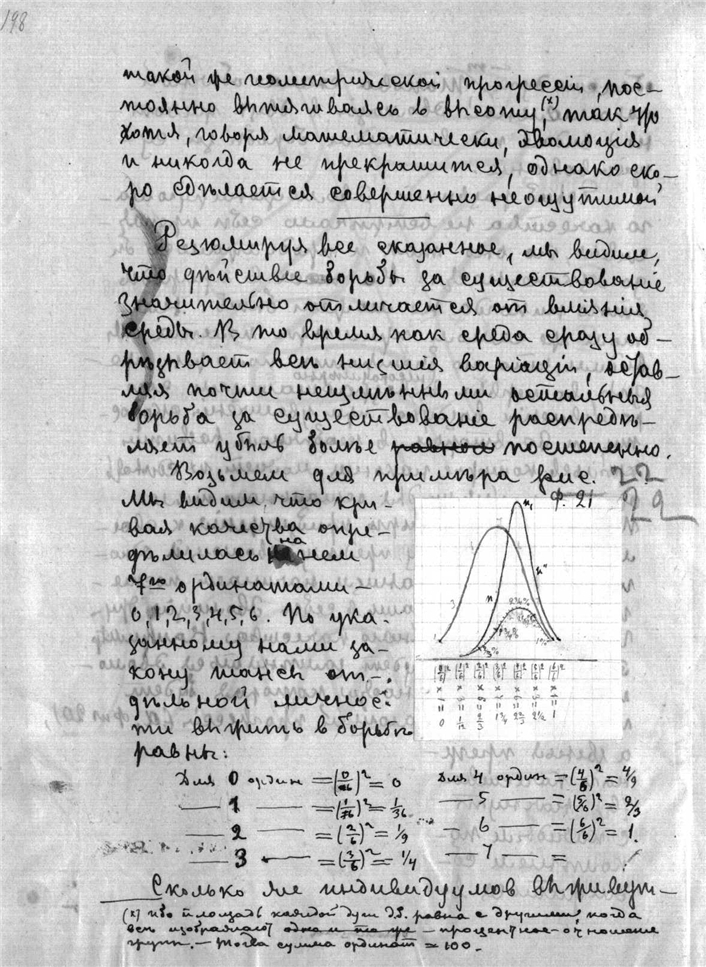 198
такой же геометрической прогрессіи, пос-
тоянно вытягиваясь в высоту,(x) так что
хотя, говоря математически, эволюція
и никогда не прекратится, однако ско-
ро сдѣлается совершенно неощутимой
Резюмируя все сказанное, мы видим,
что дѣйствіе борьбы за существованіе
значительно отличается от вліянія
среды. В то время как среда сразу об-
рѣзывает всѣ низшія варіаціи, остав-
ляя почти неизмѣнными остальныя
борьба за существованіе распредѣ-
ляет убыль болѣе равном постепенно.
Возьмем для примѣра рис. 22
Мы видим, что кри-
вая качества опре-
дѣлилась на нем
7ю ординатами —
0,1,2,3,4,5,6. По ука-
занному нами за-
кону шансы от-
дѣльной личнос-
ти выжить в борьбѣ
равны:
ф. 21 22
3 n n₁ n"
0 1/12 2/3 2 1/2 1
Для 0 ордин = (0/6)² = 0
— 1 — = (1/6)² = 1/36
— 2 — = (2/6)² = 1/9
— 3 — = (3/6)² = 1/4
Для 4 ордин = (4/6)² = 4/9
— 5 — = (5/6)² = 2/3
6 — = (6/6)² = 1.
— 7 — =
Сколько же индивидуумов выживут —
(x) ибо площадь каждой д.б. равна с другими, когда
всѣ изображают одно и то же — процентное отношеніе
групп. — Тогда сумма ординат = 100.